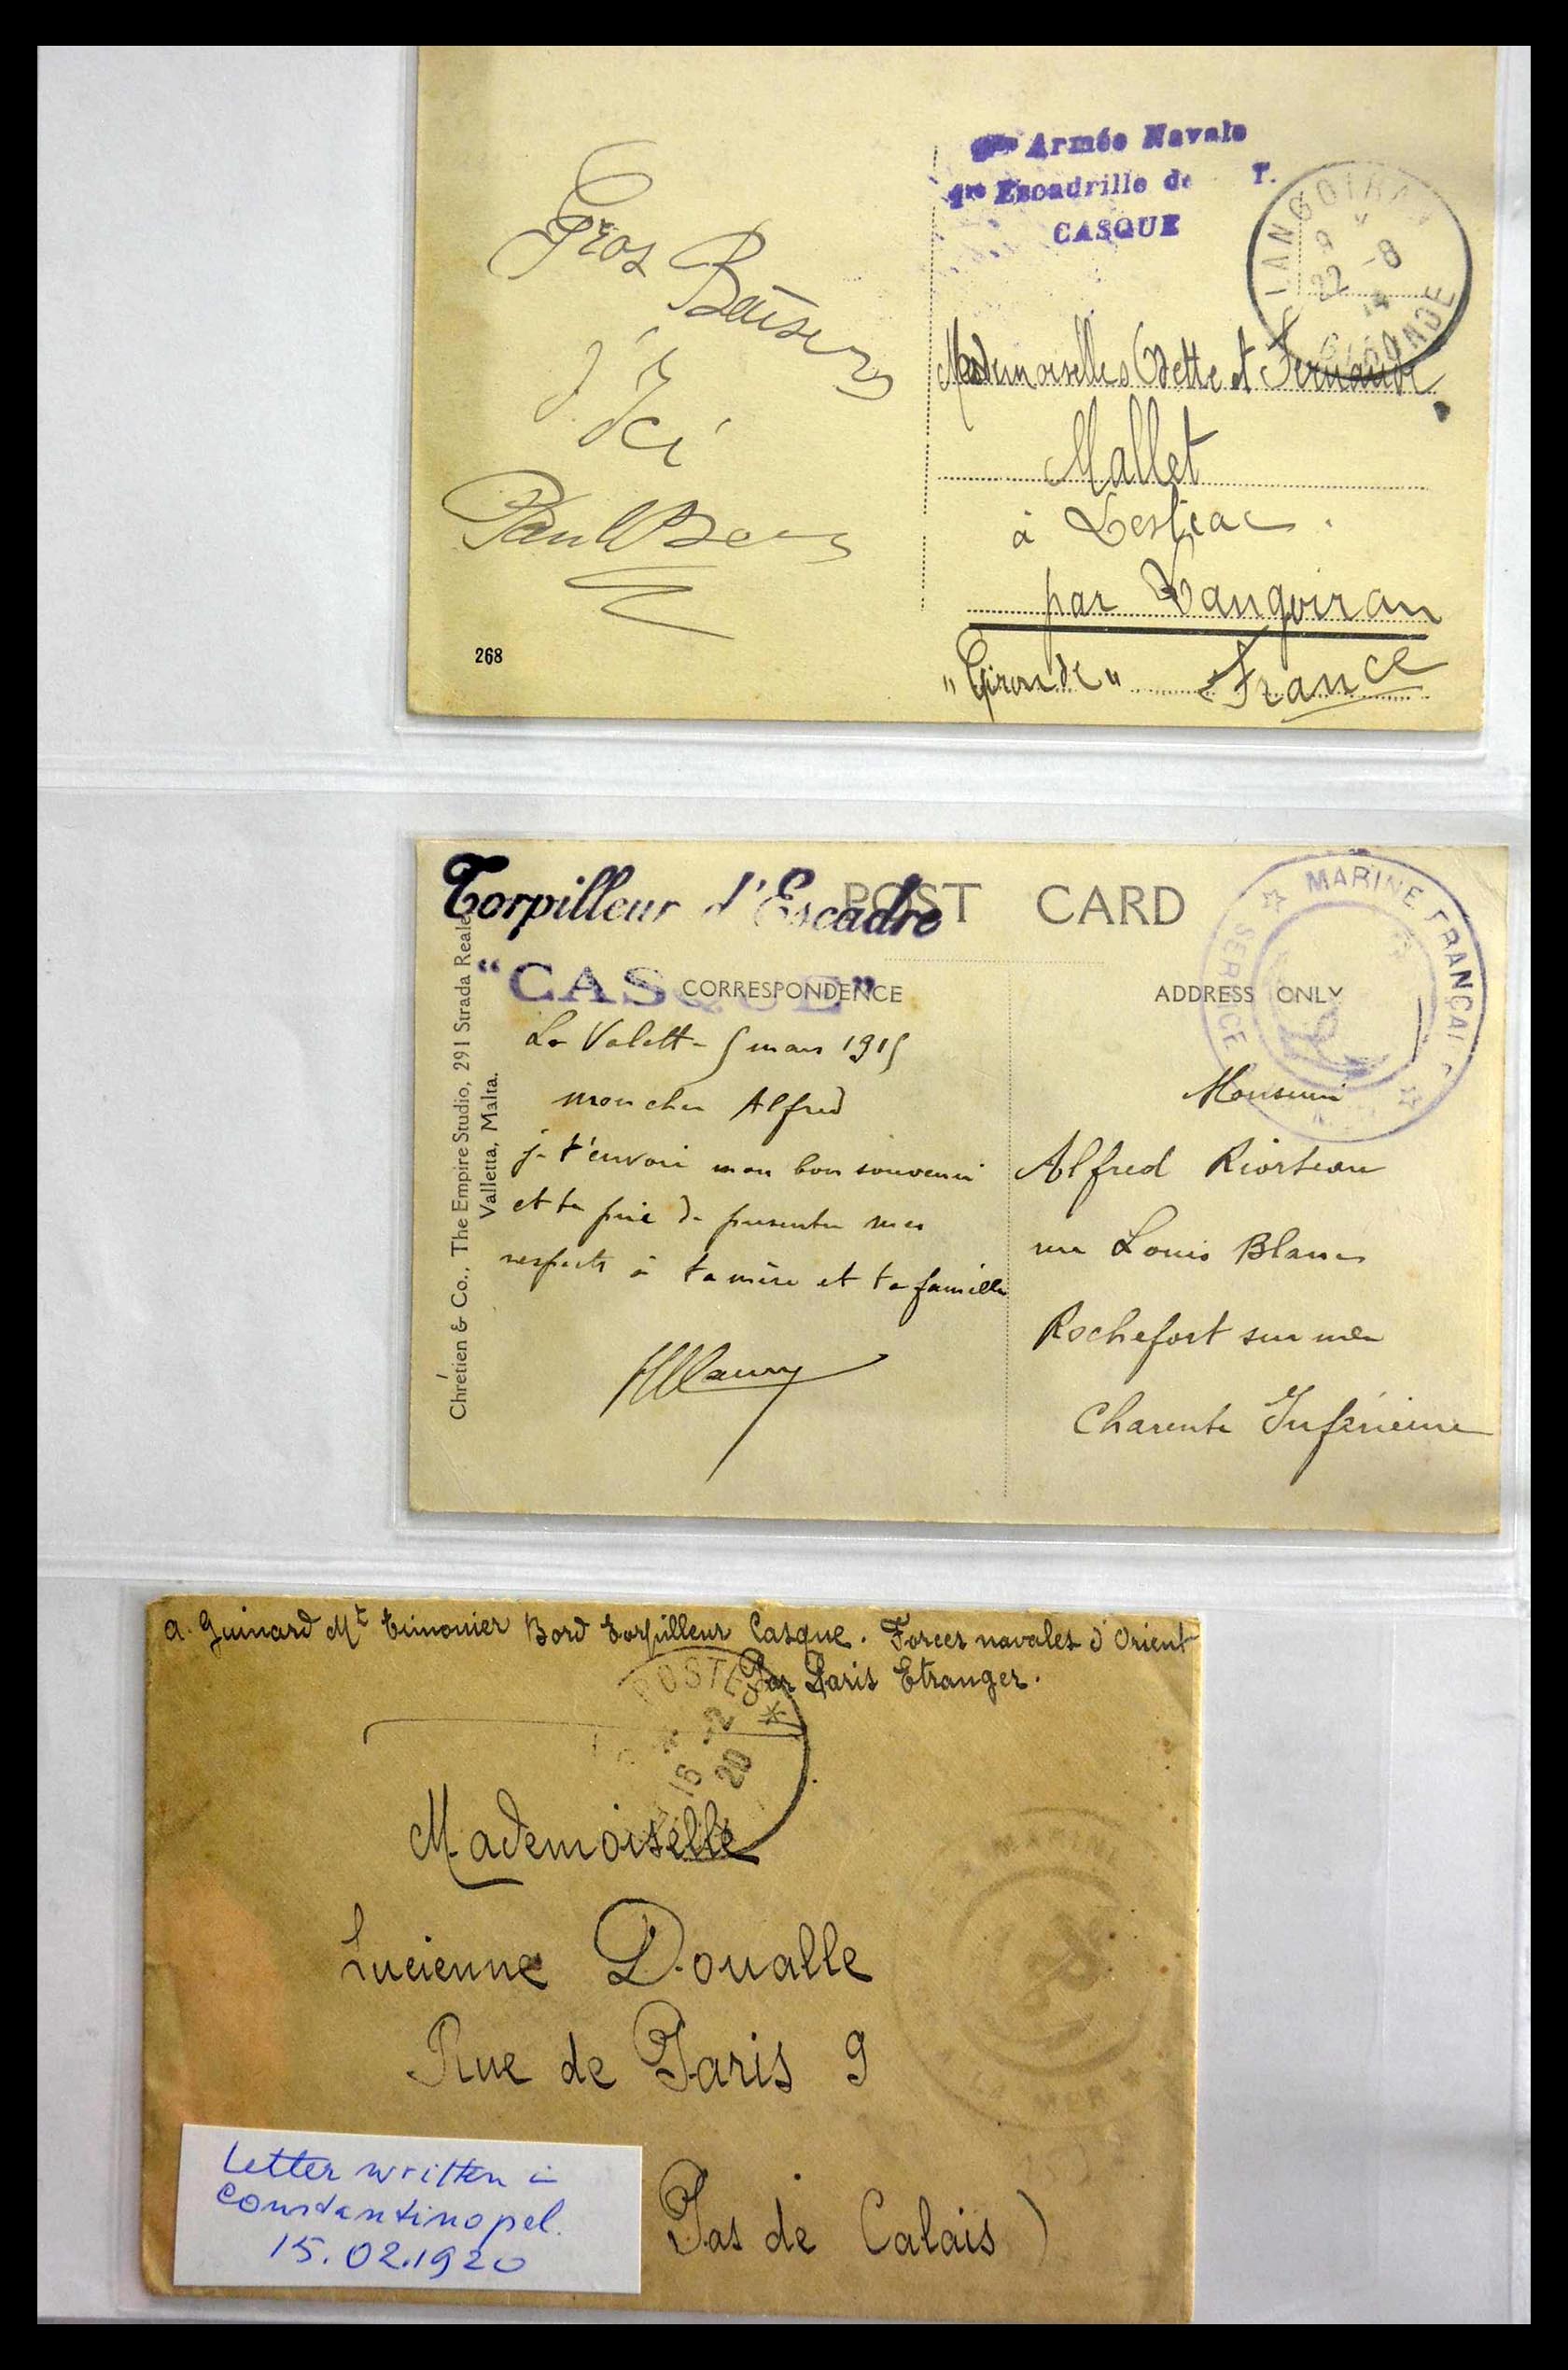 Armée Navale
1re Escadrille de T.
CASQUE
LANGOIRAN
22 -8
14
GIRONDE
Gros
Baisers
d'Ici
Paul
268
Mademoiselles Odette et Fernande
Mallet
à Lestiac.
par Langoiran
"Gironde" France
Torpilleur d'Escadre
"CASQUE"
POST CARD
CORRESPONDENCE
ADDRESS ONLY
MARINE FRANÇAISE
SERVICE
Chrétien & Co., The Empire Studio, 291 Strada Reale,
Valletta, Malta.
La Valette 5 mars 1915
mon cher Alfred
je t'envoie mon bon souvenir
et te prie de presenter mes
respects à ta mère et ta famille
Monsieur
Alfred
rue Louis Blanc
Rochefort sur mer
Charente Inférieure
A. Guinard Mt timonier Bord torpilleur Casque. Forces navales d'Orient
Par Paris Etranger.
POSTES
16 -2
20
Mademoiselle
Lucienne Doualle
Rue de Paris 9
Pas de Calais)
MARINE
LA MER
Letter written in
constantinopel.
15.02.1920